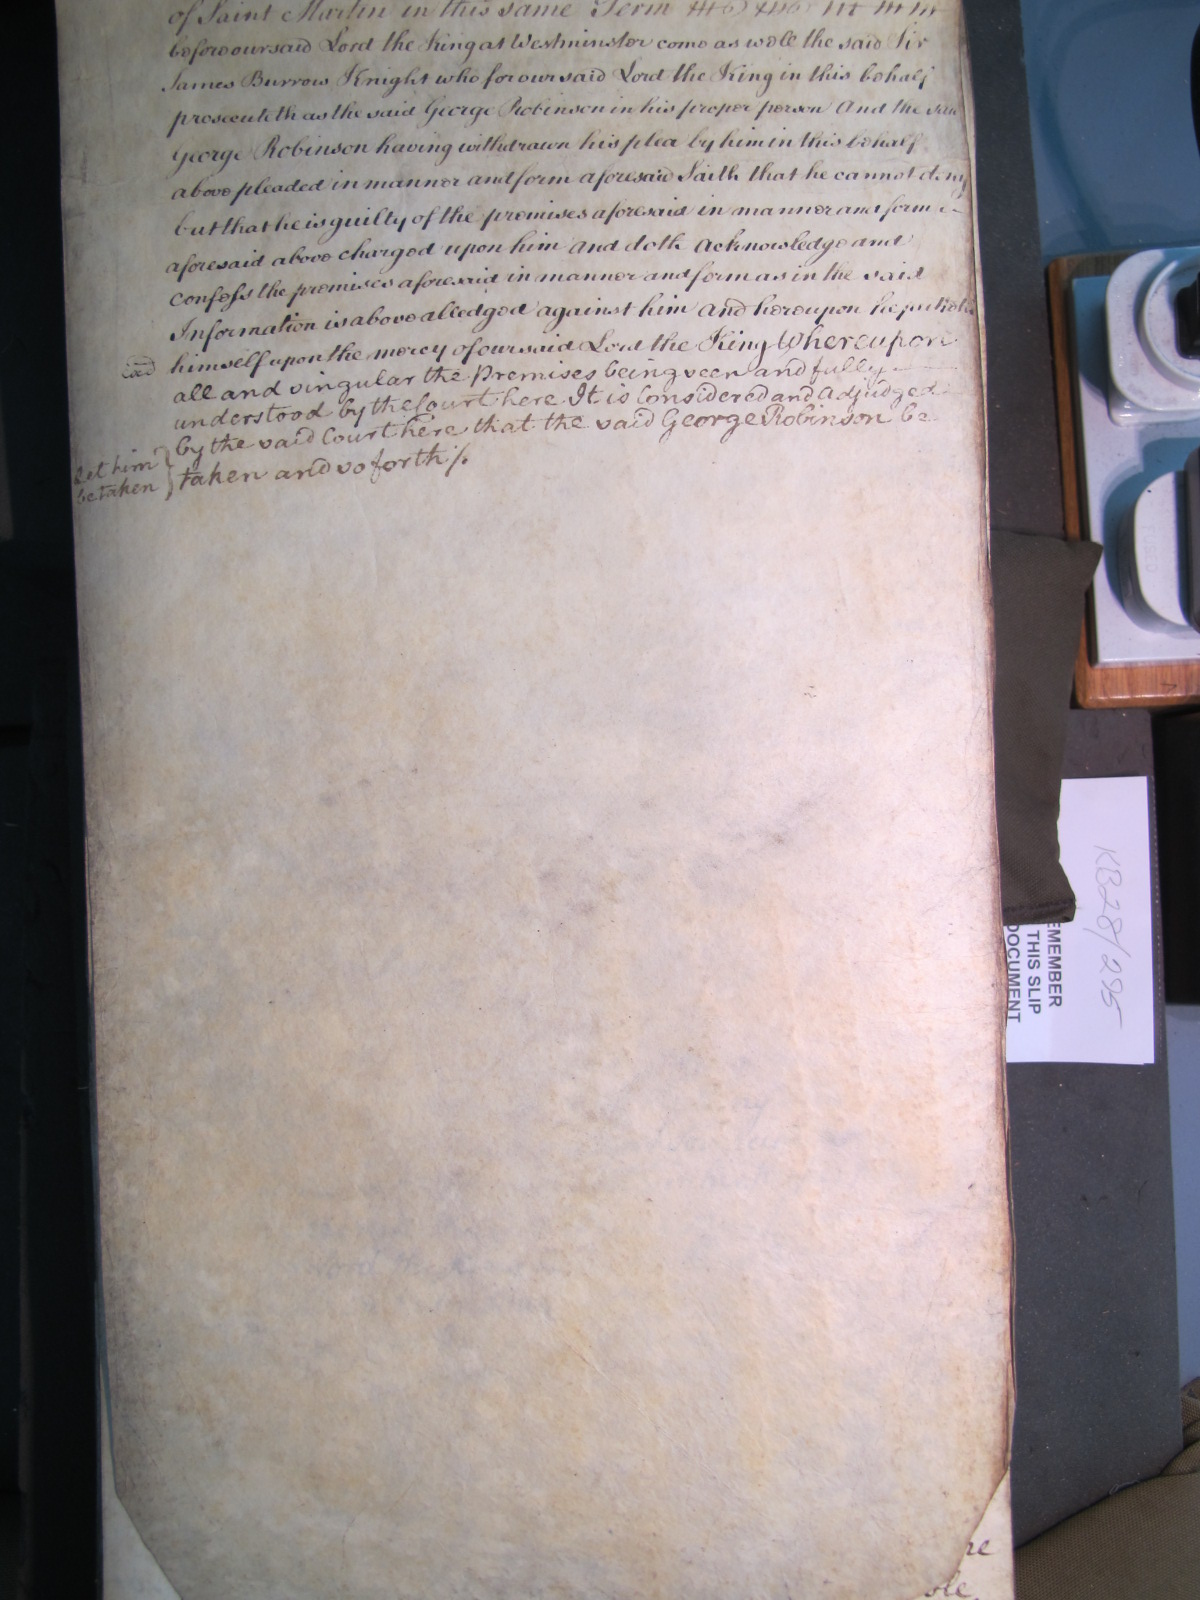 of Saint Martin in this same Term
before our said Lord the King at Westminster come as well the said Sir
James Burrow Knight who for our said Lord the King in this behalf
prosecuteth as the said George Robinson in his proper person And the said
George Robinson having withdrawn his plea by him in this behalf
above pleaded in manner and form aforesaid Saith that he cannot deny
but that he is guilty of the premises aforesaid in manner and form
aforesaid above charged upon him and doth Acknowledge and
confess the premises aforesaid in manner and form as in the said
Information is above alledged against him And hereupon he putteth
himself upon the mercy of our said Lord the King Whereupon
all and singular the Premises being seen and fully
understood by the Court here It is Considered and Adjudged
by the said Court here that the said George Robinson be
taken and so forth /.
Let him
be taken
KB28/295
EMEMBER
THIS SLIP
DOCUMENT